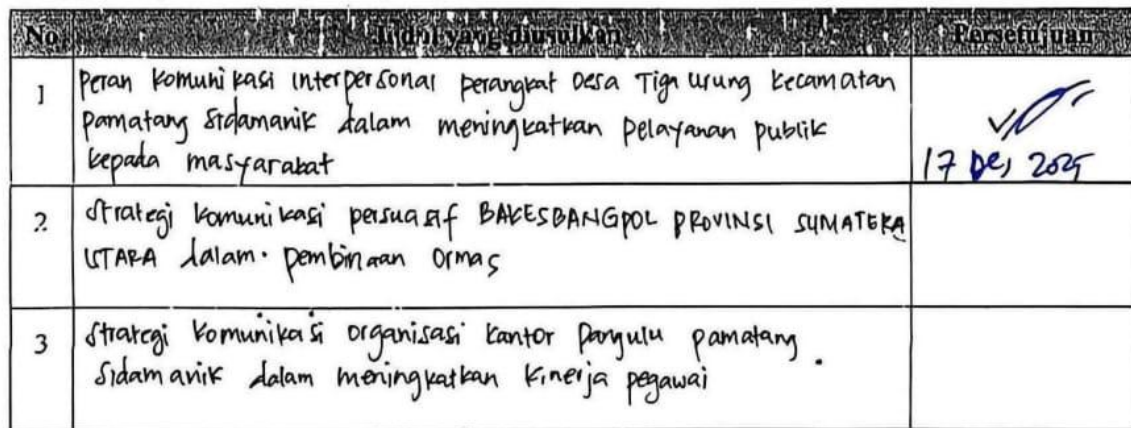 No. Judul yang diusulkan Persetujuan
1 Peran Komunikasi interpersonal perangkat Desa Tiga Urung kecamatan
Pamatang Sidamanik dalam meningkatkan pelayanan publik
kepada masyarakat
17 Des 2025
2. Strategi komunikasi persuasif BAKESBANGPOL PROVINSI SUMATERA
UTARA dalam. pembinaan Ormas
3 Strategi Komunikasi organisasi kantor Pangulu pamatang
Sidamanik dalam meningkatkan Kinerja pegawai